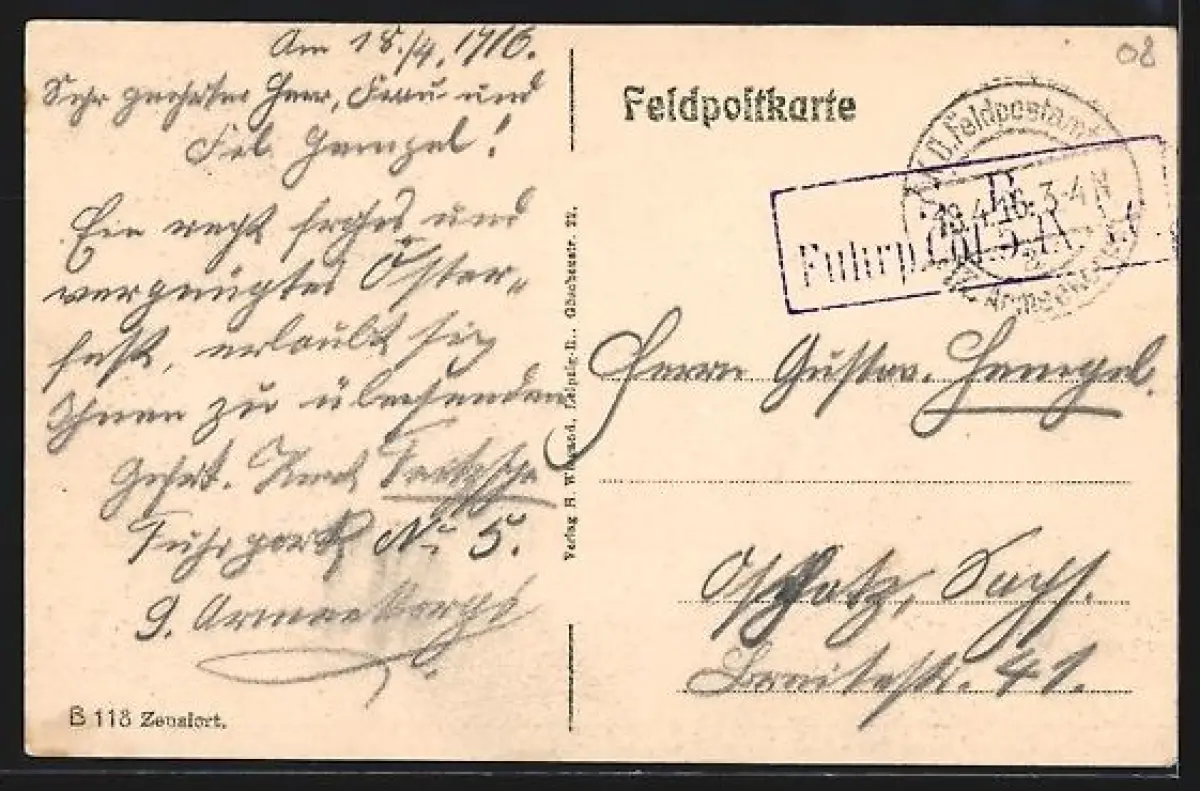 Am 18./4. 1916.
Sehr geehrter Herr, Frau und
Frl. Hempel!
Ein recht frohes und
vergnügtes Oster-
fest, erlaubt sich
Ihnen zu übersenden
Gefrt. Kurt Fritzsche
Fuhrpark No 5.
9. Armeekorps
B 118 Zensiort.
Verlag H. Leipzig-R., Göschenstr. 22.
08
Feldpostkarte
K.D. Feldpostamt
19.4.16. 3-4 N
Armeekorps
B.
Fuhrp. Kol. 5
Herrn Gustav Hempel.
Oschatz, Sachs.
Breitestr. 41.